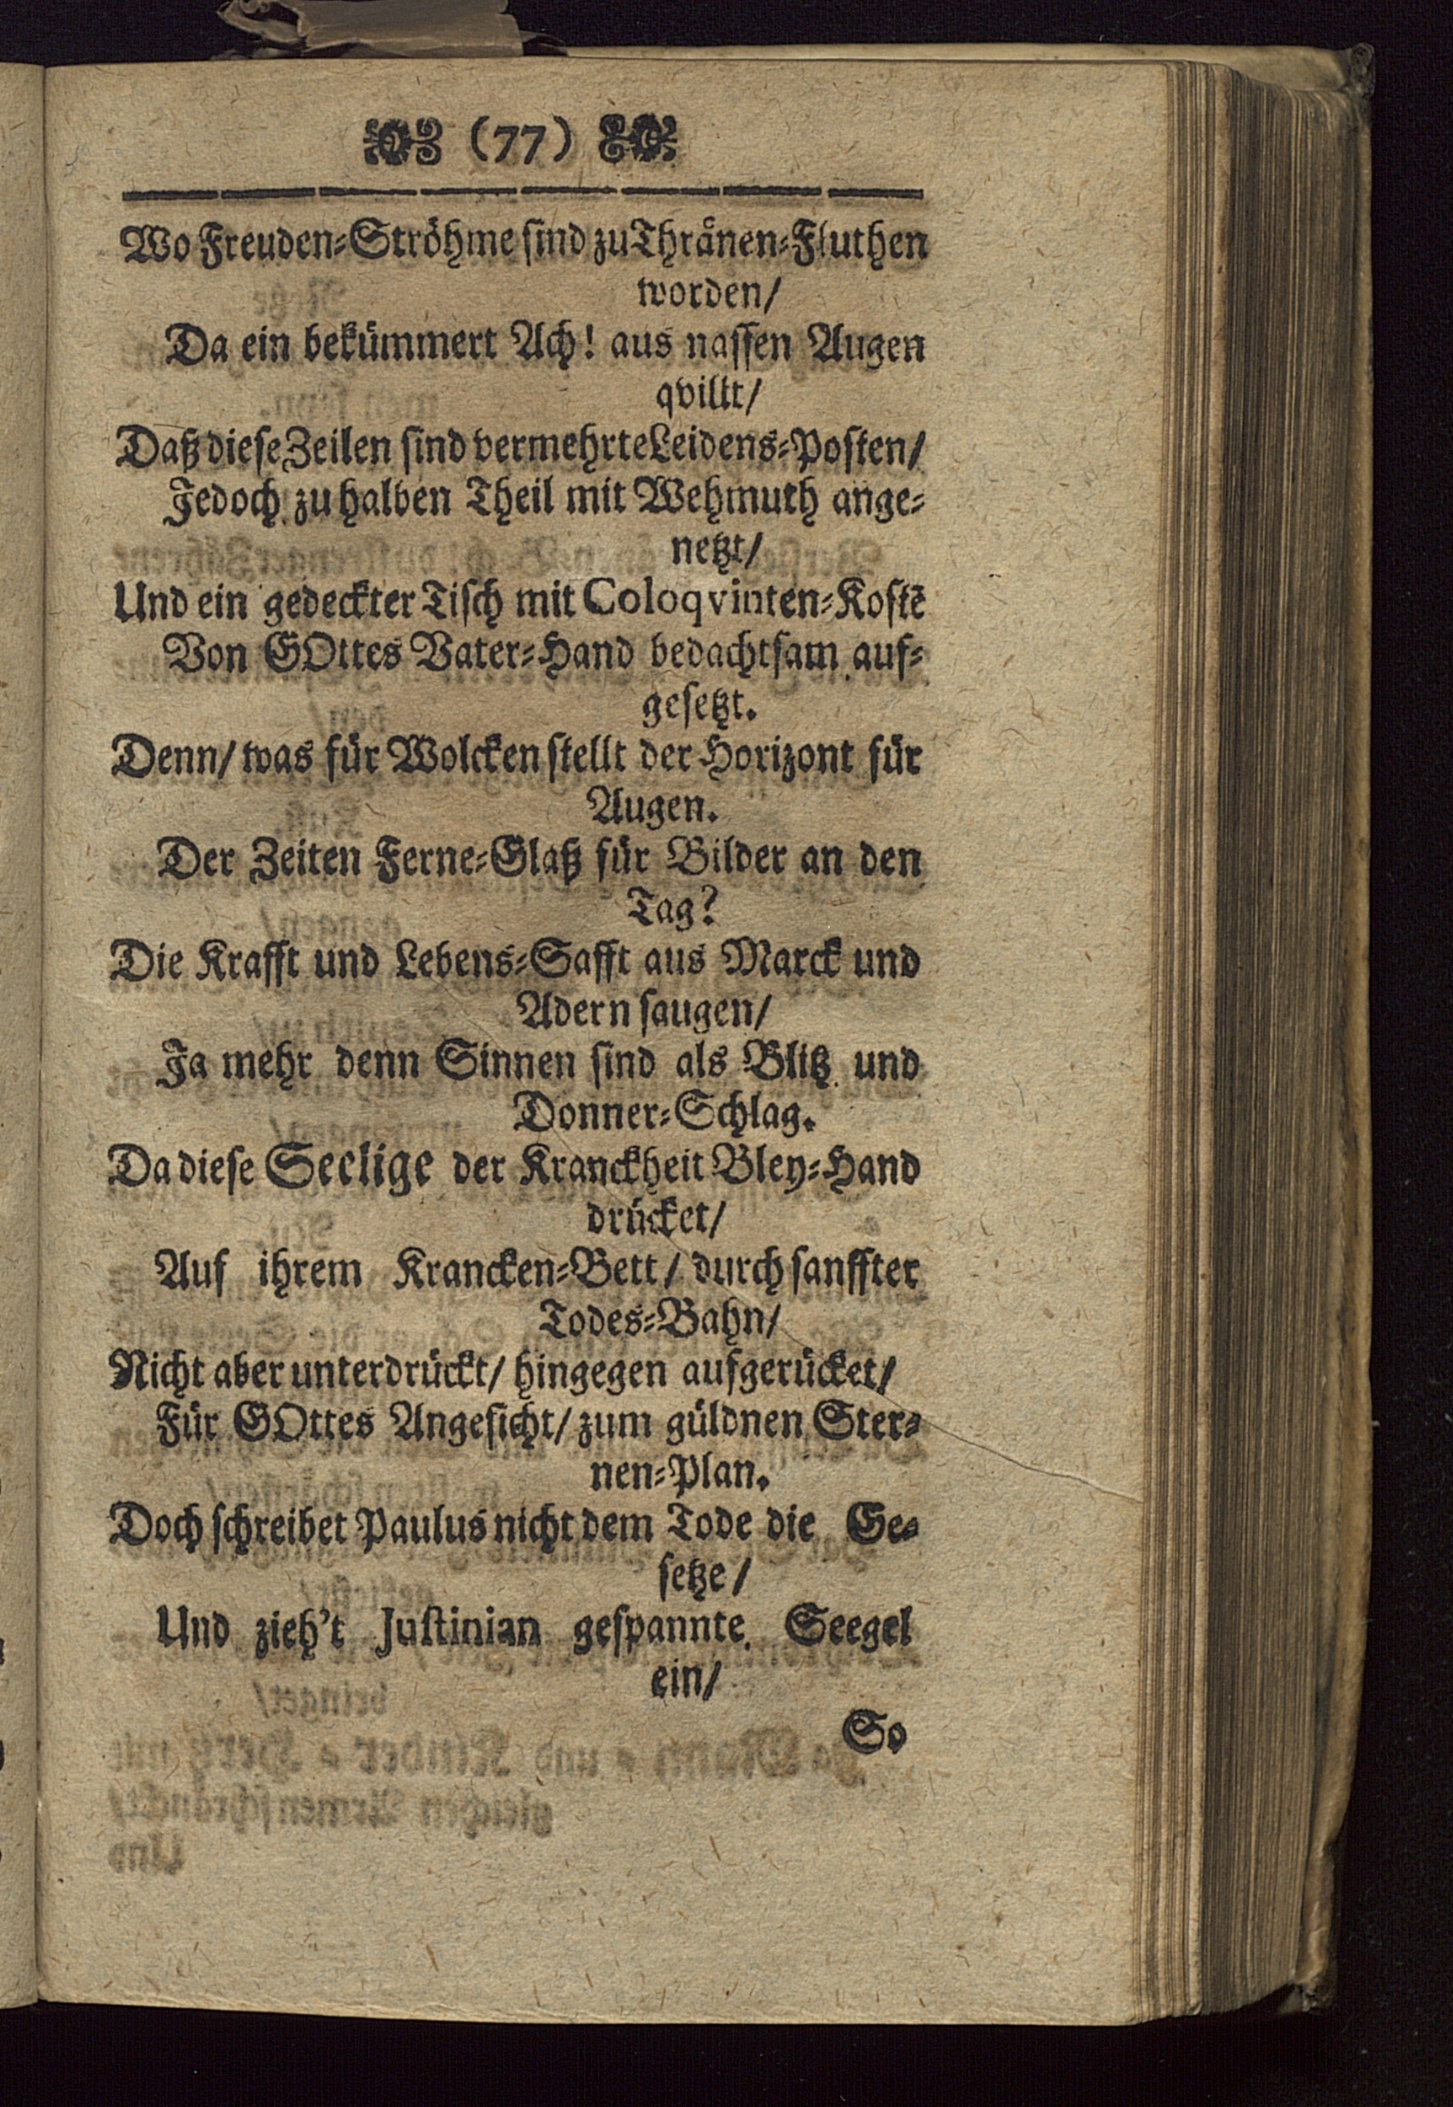 (77)
Wo Freuden-Ströhme sind zu Thränen-Fluthen
worden/
Da ein bekümmert Ach! aus nassen Augen
qvillt/
Daß diese Zeilen sind vermehrte Leidens-Posten/
Jedoch zu halben Theil mit Wehmuth ange-
netzt/
Und ein gedeckter Tisch mit Coloqvinten-Kostē
Von GOttes Vater-Hand bedachtsam auf-
gesetzt.
Denn/ was für Wolcken stellt der Horizont für
Augen.
Der Zeiten Ferne-Glaß für Bilder an den
Tag?
Die Krafft und Lebens-Safft aus Marck und
Adern saugen/
Ja mehr denn Sinnen sind als Blitz und
Donner-Schlag.
Da diese Seelige der Kranckheit Bley-Hand
drücket/
Auf ihrem Krancken-Bett/ durch sanffter
Todes-Bahn/
Nicht aber unterdrückt/ hingegen aufgerücket/
Für GOttes Angesicht/ zum güldnen Ster-
nen-Plan.
Doch schreibet Paulus nicht dem Tode die Ge-
setze/
Und zieh't Justinian gespannte Seegel
ein/
So